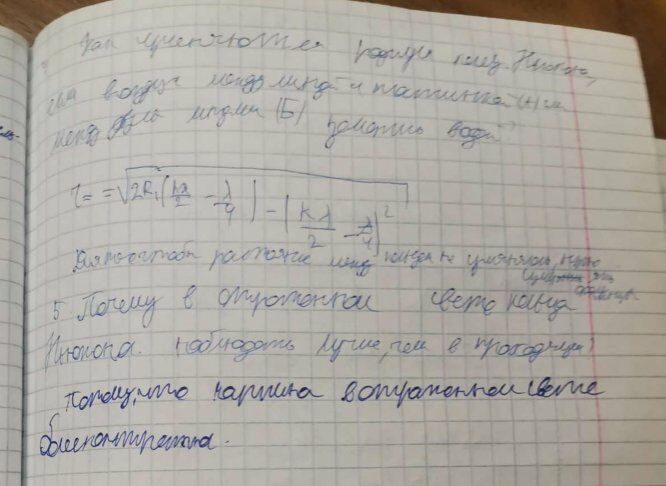 Как изменяются радиусы колец Ньютона,
если воздух между линзой и пластинкой (А) или
между двумя линзами (Б) заменить водой?
r = = √2R₁(kλ/2 - λ/4) - (kλ/2 - λ/4)²
Для того чтобы растояние между кольцами не изменялось нужно
5. Почему в отраженном свете кольца
Ньютона наблюдать лучше, чем в проходящем?
потому, что картина в отраженном свете
более контрастна.